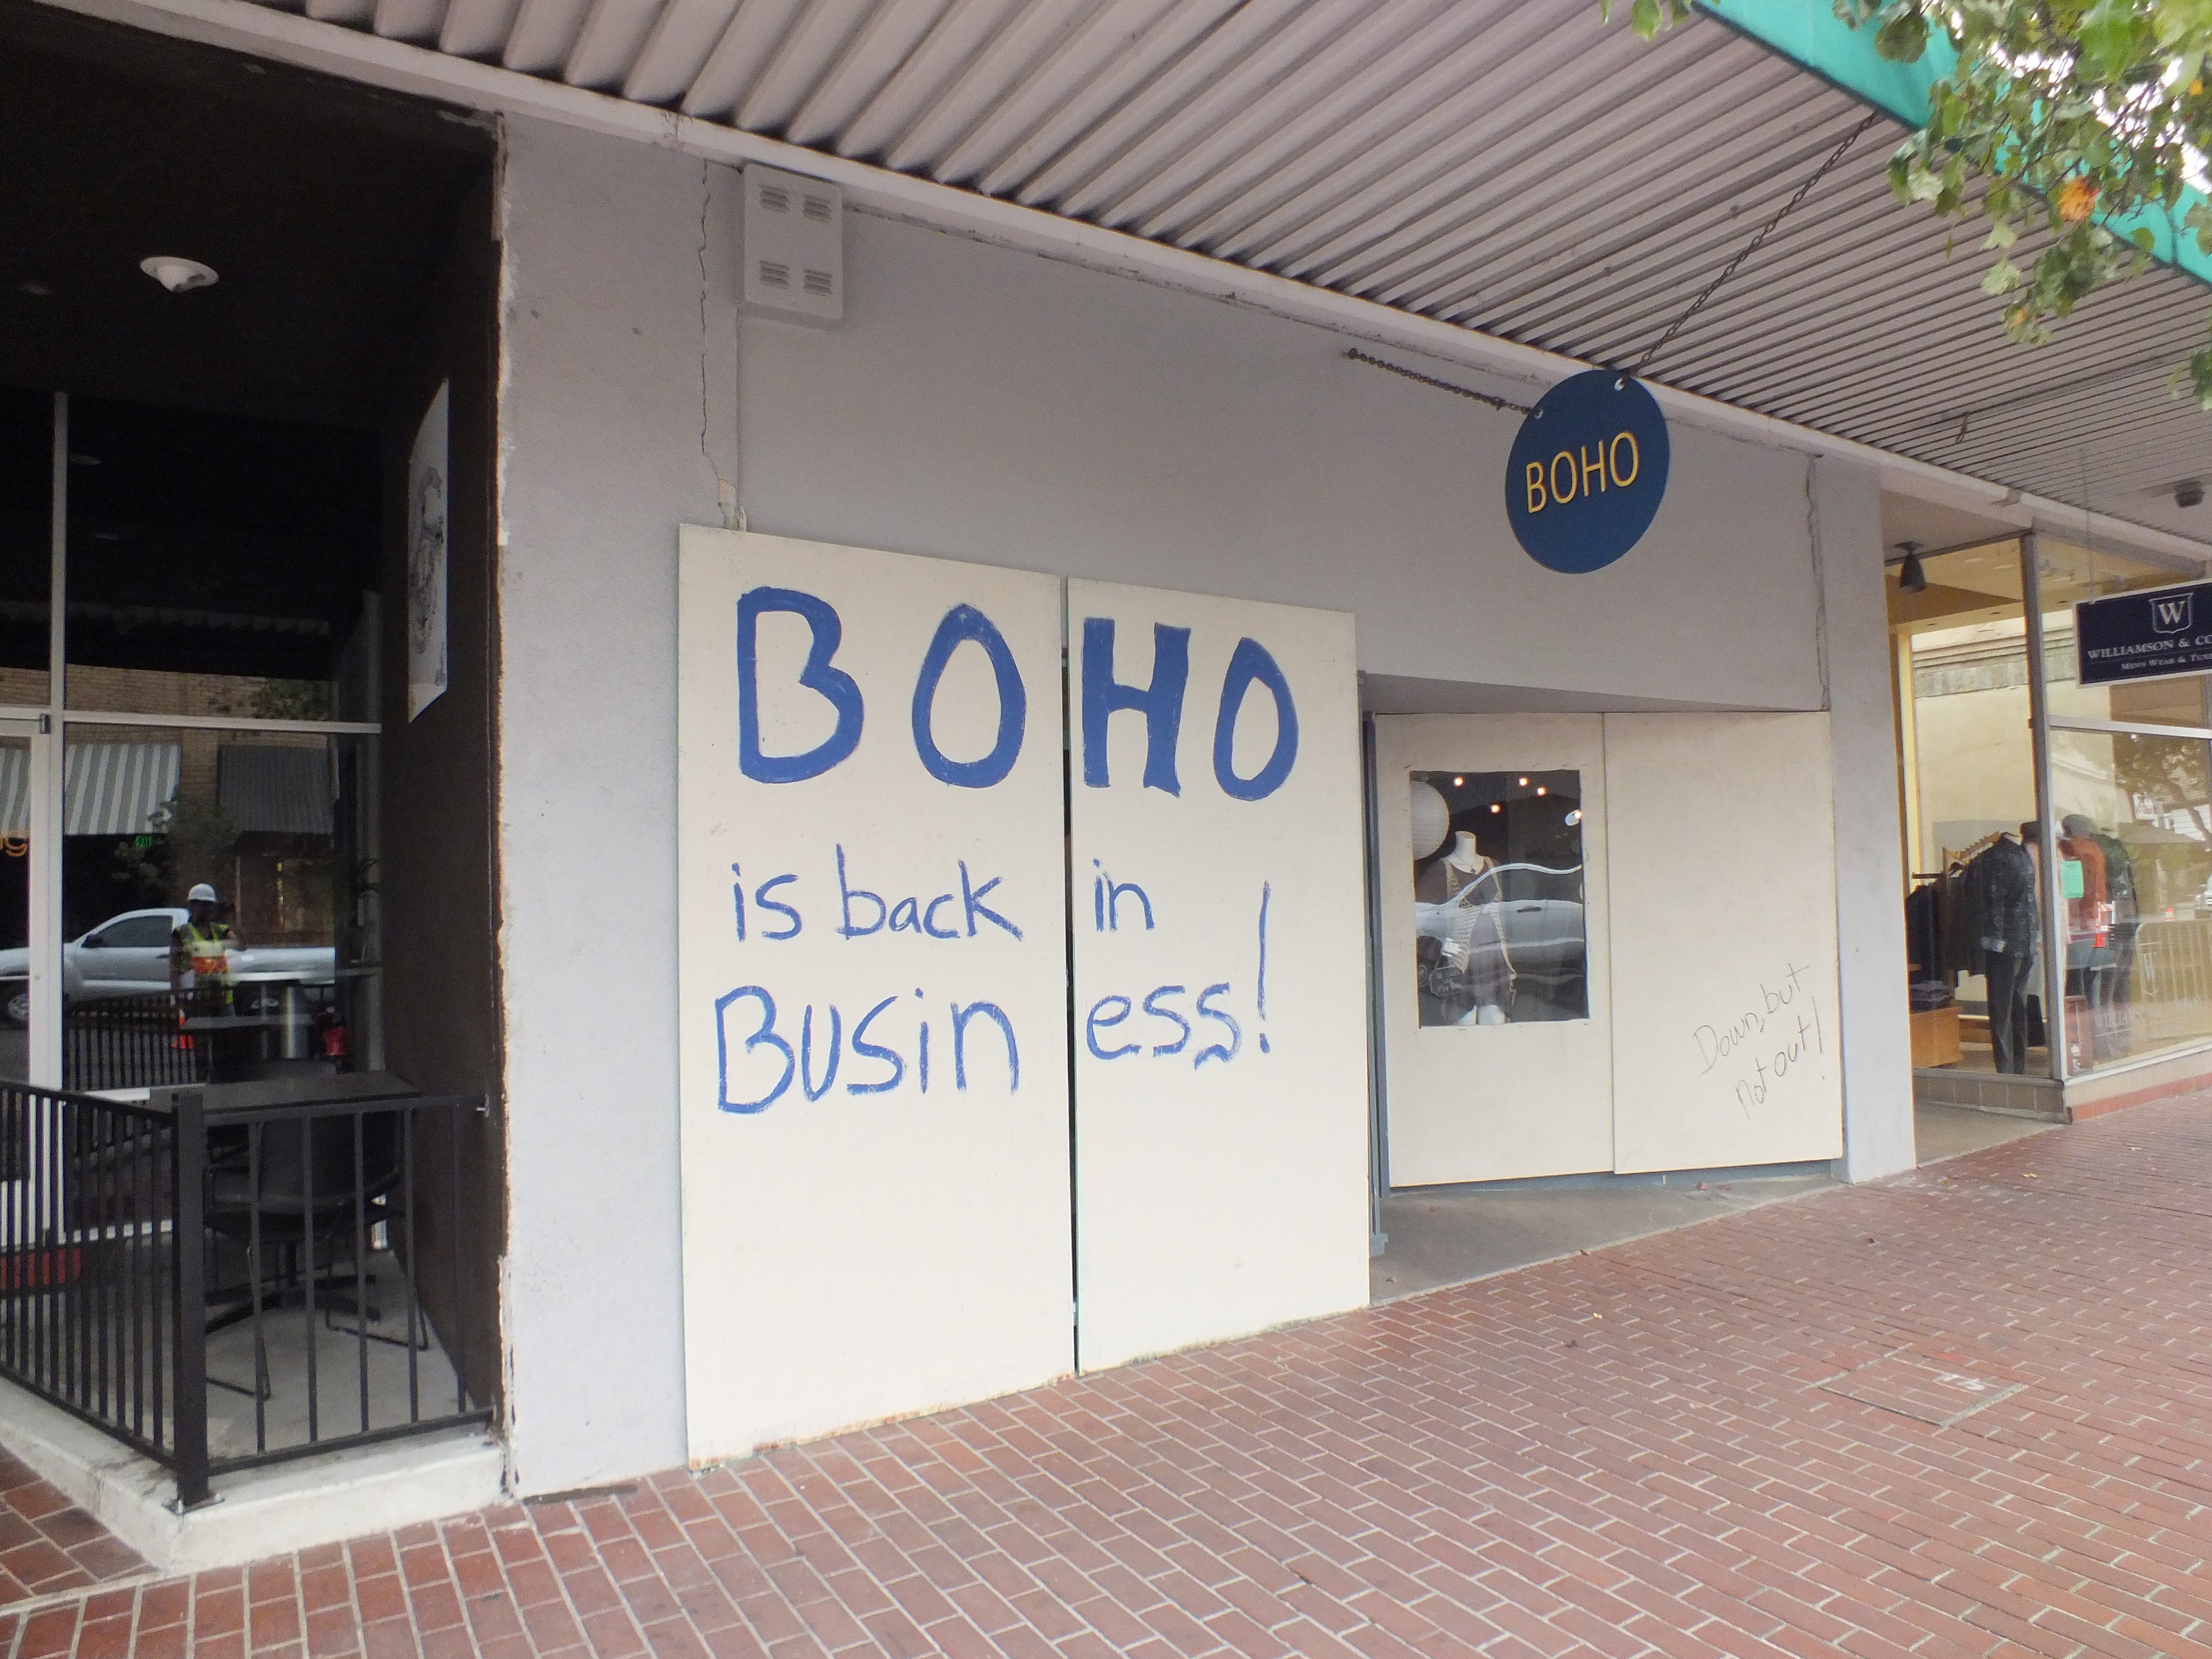 BOHO
is back in
Business!
BOHO
Down, but
not out!
W
WILLIAMSON & CO
MENS WEAR & TUX